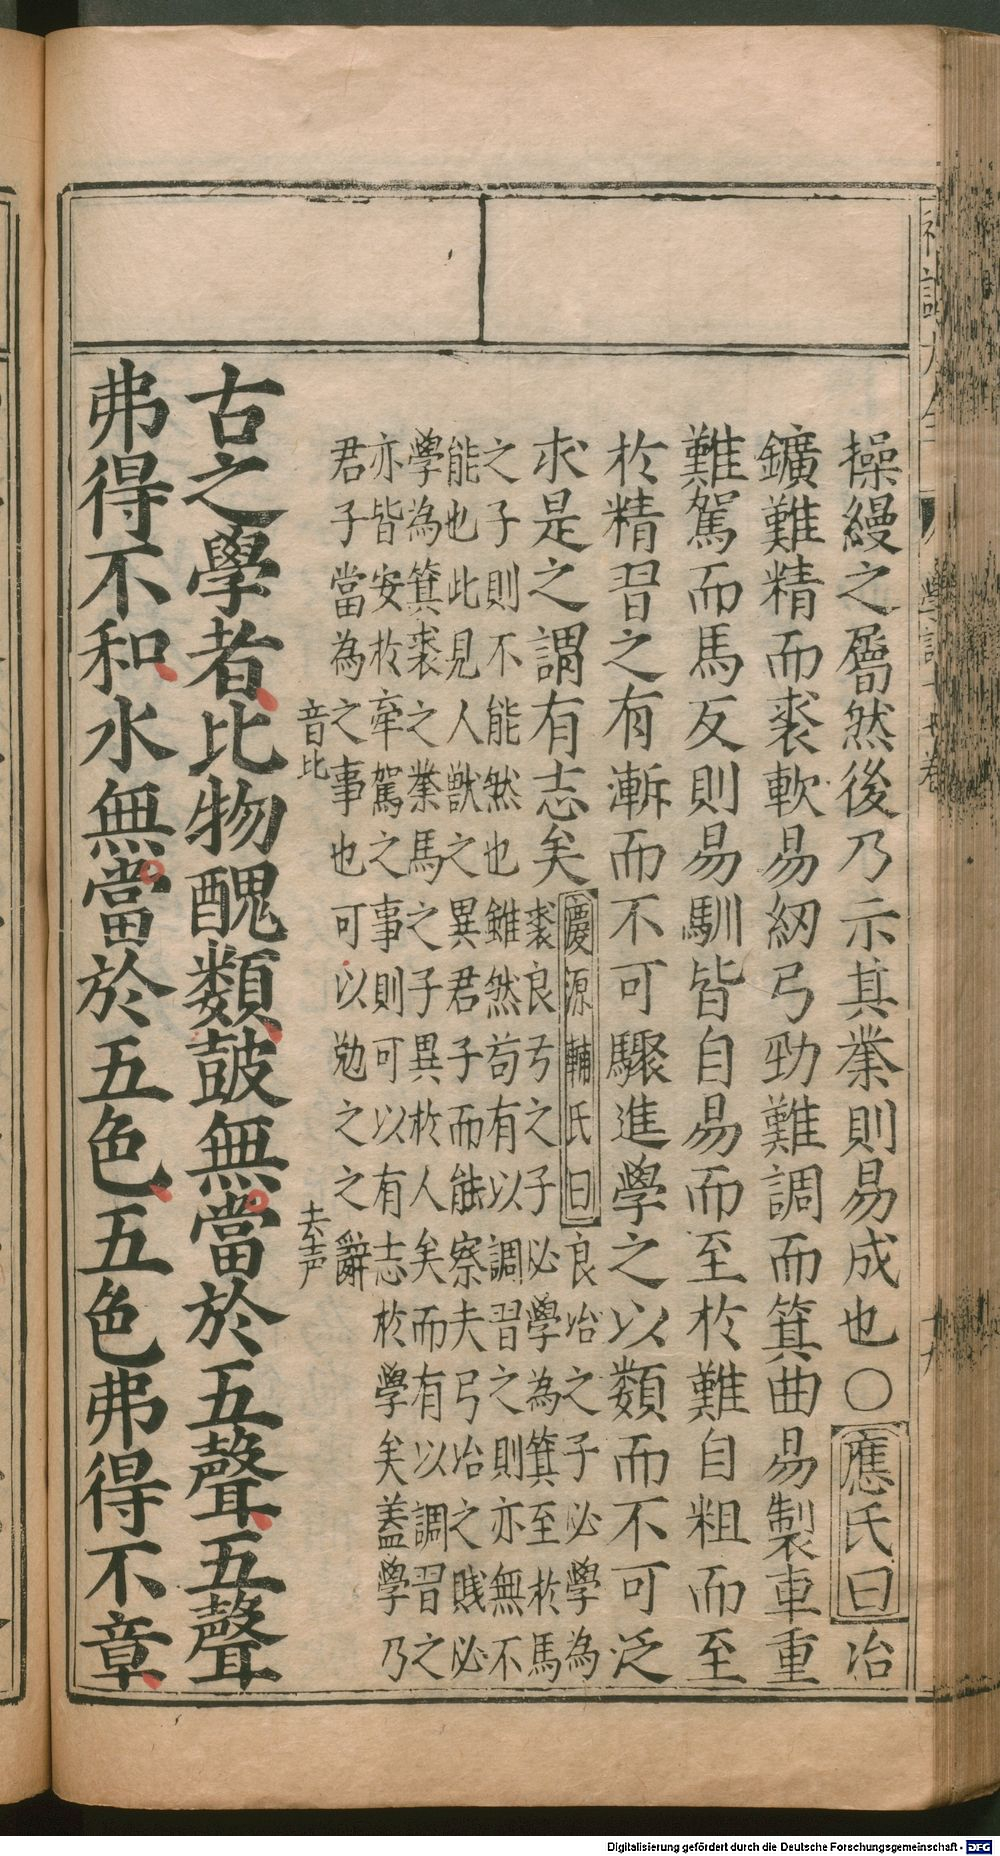 操縵之屬然後乃示其業則易成也○應氏曰冶
鑛難精而裘軟易紉弓勁難調而箕曲易製車重
難駕而馬反則易馴皆自易而至於難自粗而至
於精習之有漸而不可驟進學之以類而不可泛
求是之謂有志矣慶源輔氏曰良冶之子必學為
裘良弓之子必學為箕至於馬
之子則不能然也雖然苟有以調習之則亦無不
能也此見人獸之異君子而能察夫弓冶之賤必
學為箕裘之業馬之子異於人矣而有以調習之
亦皆安於牽駕之事則可以有志於學矣蓋學乃
君子當為之事也可以勉之之辭
音比 去声
古之學者比物醜類皷無當於五聲五聲
弗得不和水無當於五色五色弗得不章
Digitalisierung gefördert durch die Deutsche Forschungsgemeinschaft - DFG